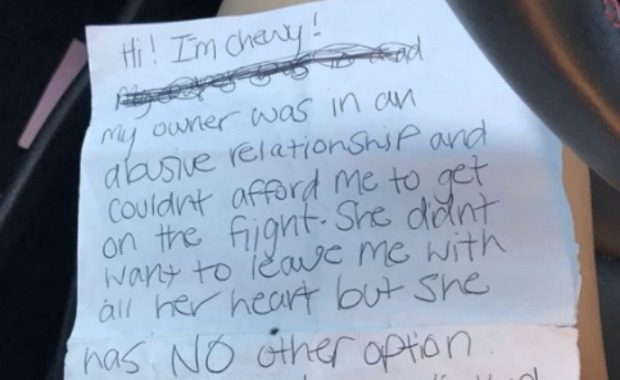 Hi! I'm chewy!
my owner was in an
abusive relationship and
couldnt afford me to get
on the flight. She didnt
want to leave me with
all her heart but she
has NO other option.